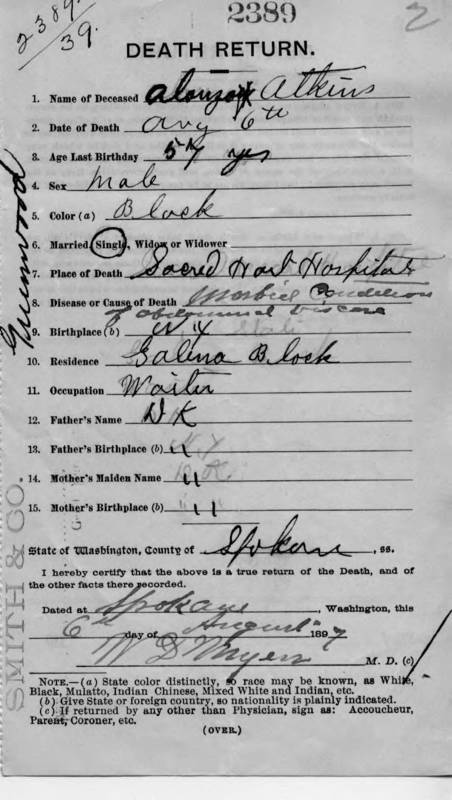 2389
2389
39.
2
DEATH RETURN.
1. Name of Deceased Alonzo Atkins
2. Date of Death Aug 6th
3. Age Last Birthday 54 yes
4. Sex Male
5. Color (a) Black
6. Married, Single, Widow or Widower
7. Place of Death Sacred Hart Hospital
8. Disease or Cause of Death Morbid Condition
of abdominal viscera
9. Birthplace (b) N.Y.
10. Residence Galena Block
11. Occupation Waiter
12. Father's Name N K
13. Father's Birthplace (b) "
14. Mother's Maiden Name "
15. Mother's Birthplace (b) "
State of Washington, County of Spokane, ss.
I hereby certify that the above is a true return of the Death, and of
the other facts there recorded.
Dated at Spokane, Washington, this
6th day of August 1897
W D Myers M. D. (c)
NOTE.—(a) State color distinctly, so race may be known, as White,
Black, Mulatto, Indian Chinese, Mixed White and Indian, etc.
(b) Give State or foreign country, so nationality is plainly indicated.
(c) If returned by any other than Physician, sign as: Accoucheur,
Parent, Coroner, etc.
(OVER.)
Greenwood
SMITH & CO.